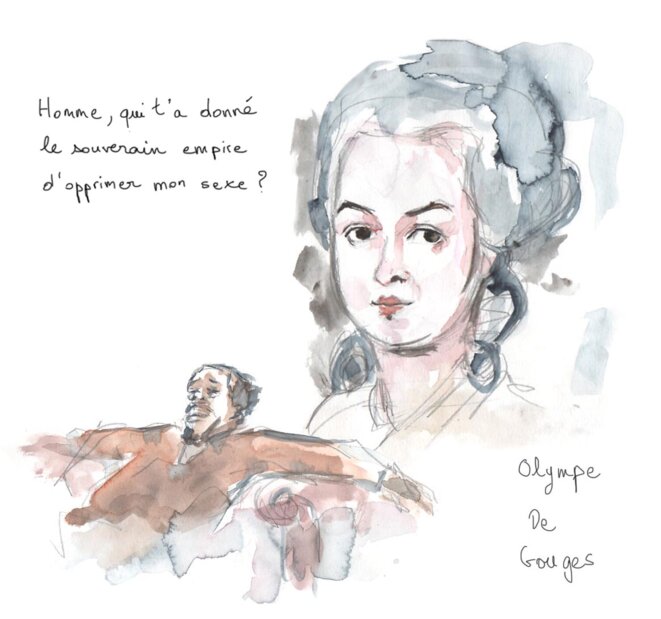 Homme, qui t'a donné
le souverain empire
d'opprimer mon sexe ?
Olympe
De
Gouges